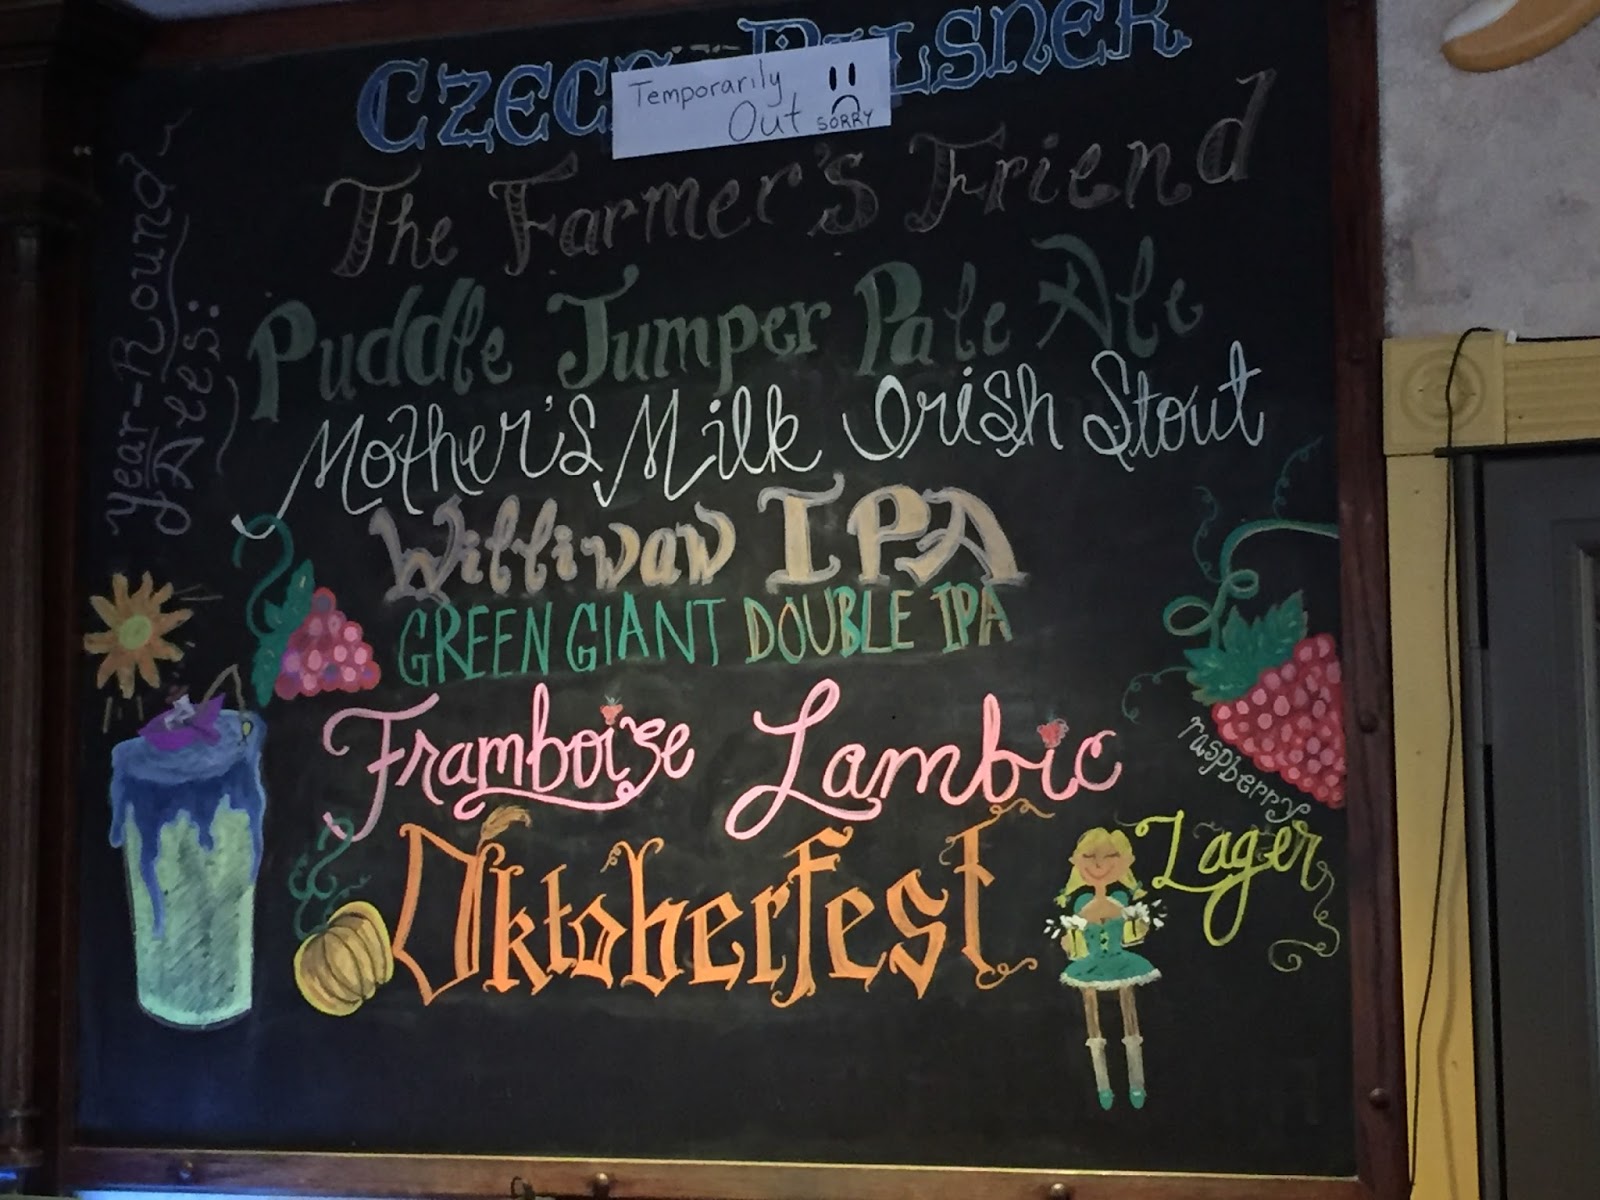 Year-Round
Ales:
CZECH PILSNER
Temporarily
Out SORRY
The Farmer's Friend
Puddle Jumper Pale Ale
Mother's Milk Irish Stout
Williwaw IPA
GREEN GIANT DOUBLE IPA
Framboise Lambic
raspberry
Oktoberfest Lager